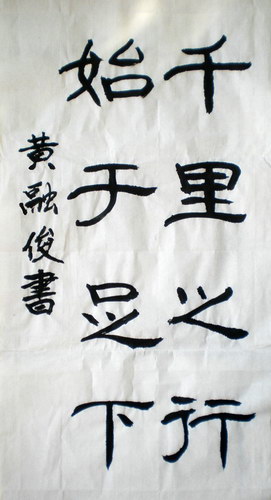 千里之行
始于足下
黄融俊書